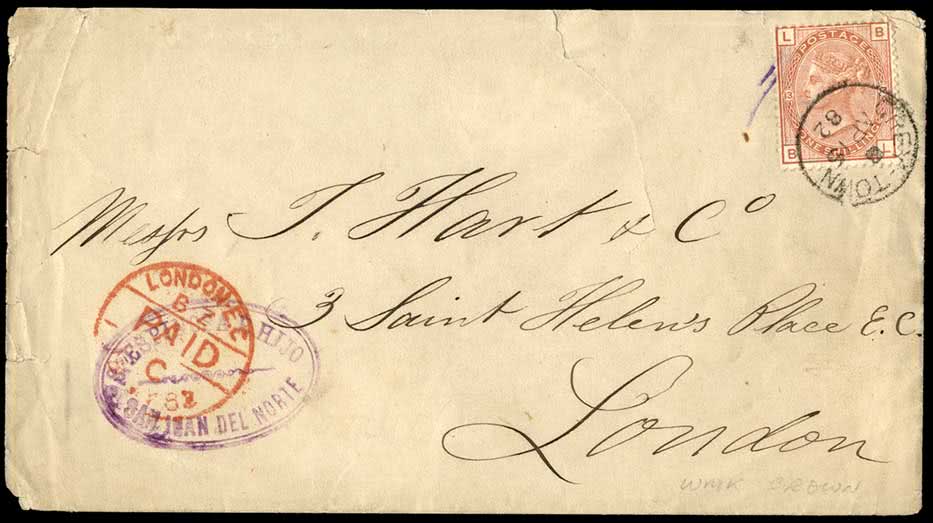 L B
POSTAGE
13
ONE SHILLING
B L
GREY-TOWN
AP 13
82
Messrs T. Hart & Co
3 Saint Helen's Place E.C.
London
LONDON E.C
PAID
C
82
HIJO
SAN JUAN DEL NORTE
WMK CROWN